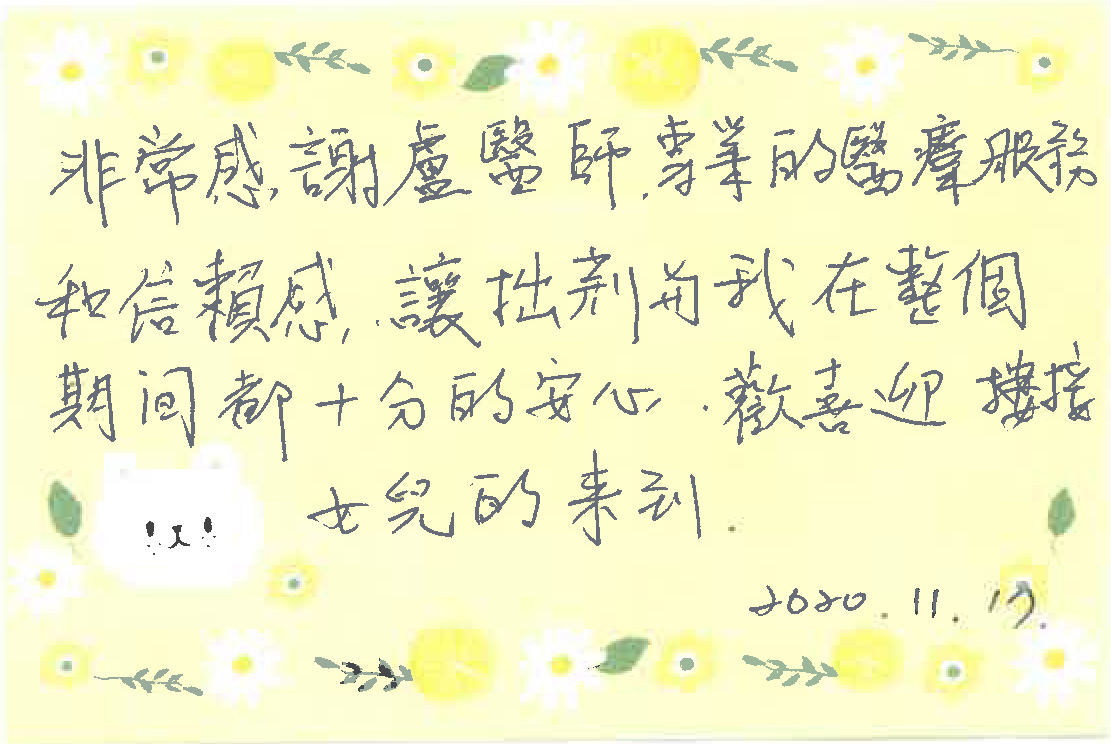 非常感謝盧醫師專業的醫療服務
和信賴感,讓拙荊與我在整個
期间都十分的安心.歡喜迎接
女兒的来到.
2020.11.17.